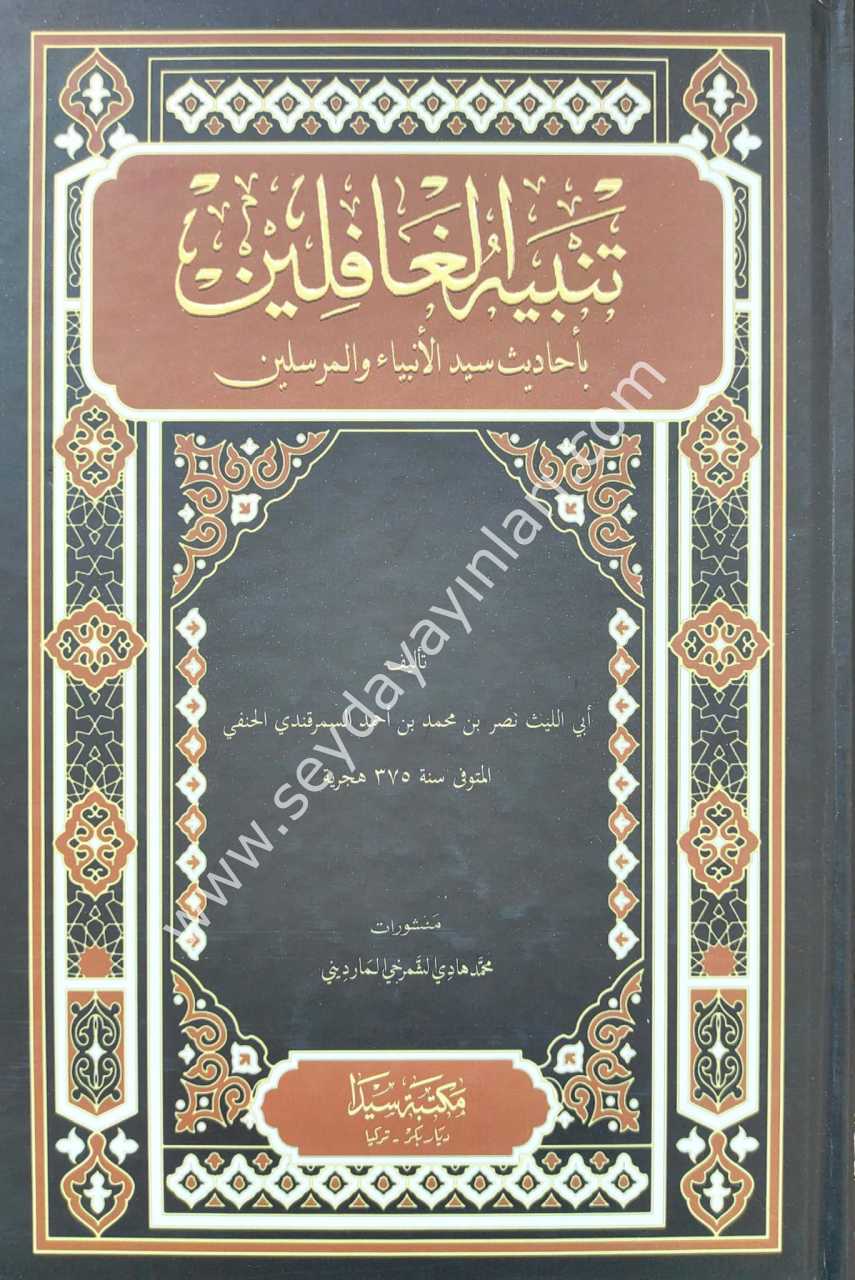 تنبيه الغافلين
بأحاديث سيد الأنبياء والمرسلين
تأليف
أبي الليث نصر بن محمد بن احمد السمرقندي الحنفي
المتوفى سنة ٣٧٥ هجرية
منشورات
محمد هادي الشمرخي المارديني
مكتبة سيدا
ديار بكر - تركيا
www.seydayayinlari.com